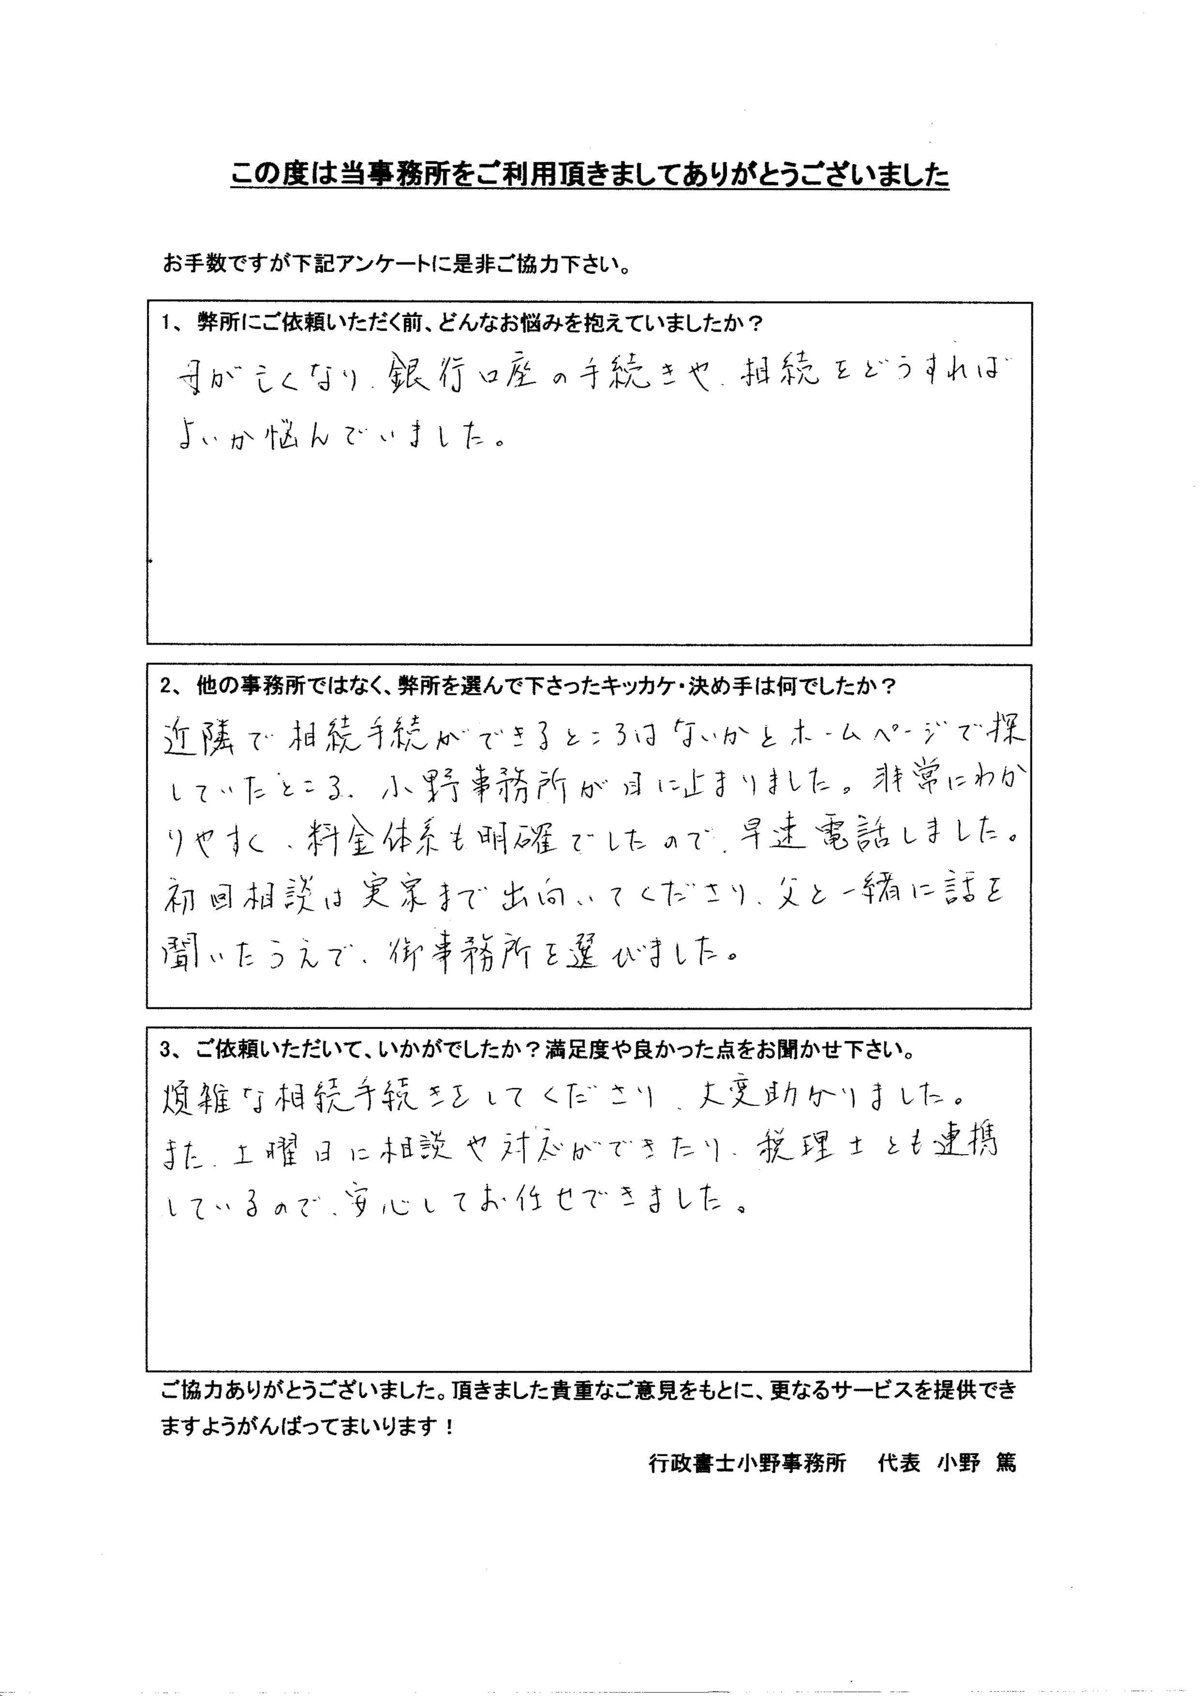 この度は当事務所をご利用頂きましてありがとうございました
お手数ですが下記アンケートに是非ご協力下さい。
1、 弊所にご依頼いただく前、どんなお悩みを抱えていましたか？
母が亡くなり、銀行口座の手続きや、相続をどうすれば
よいか悩んでいました。
2、 他の事務所ではなく、弊所を選んで下さったキッカケ・決め手は何でしたか？
近隣で相続手続ができるところはないかとホームページで探
していたところ、小野事務所が目に止まりました。非常にわか
りやすく、料金体系も明確でしたので、早速電話しました。
初回相談は実家まで出向いてくださり、父と一緒に話を
聞いたうえで、御事務所を選びました。
3、 ご依頼いただいて、いかがでしたか？満足度や良かった点をお聞かせ下さい。
煩雑な相続手続きをしてくださり、大変助かりました。
また、土曜日に相談や対応ができたり、税理士とも連携
しているので、安心してお任せできました。
ご協力ありがとうございました。頂きました貴重なご意見をもとに、更なるサービスを提供でき
ますようがんばってまいります！
行政書士小野事務所　代表　小野　篤